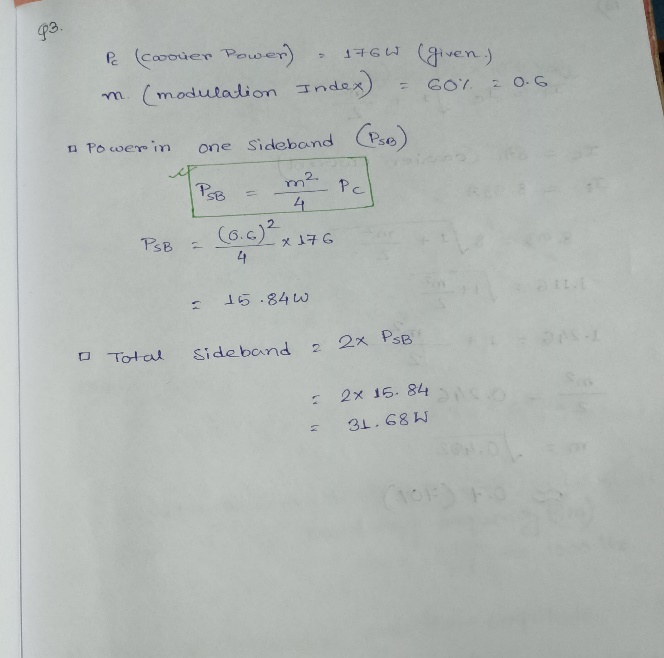 Q3.
Pc (Carrier Power) = 176W (given)
m. (modulation Index) = 60% = 0.6
Power in one sideband (PSB)
PSB = m²/4 Pc
PSB = (0.6)²/4 x 176
= 15.84W
Total sideband = 2x PSB
= 2x 15.84
= 31.68W